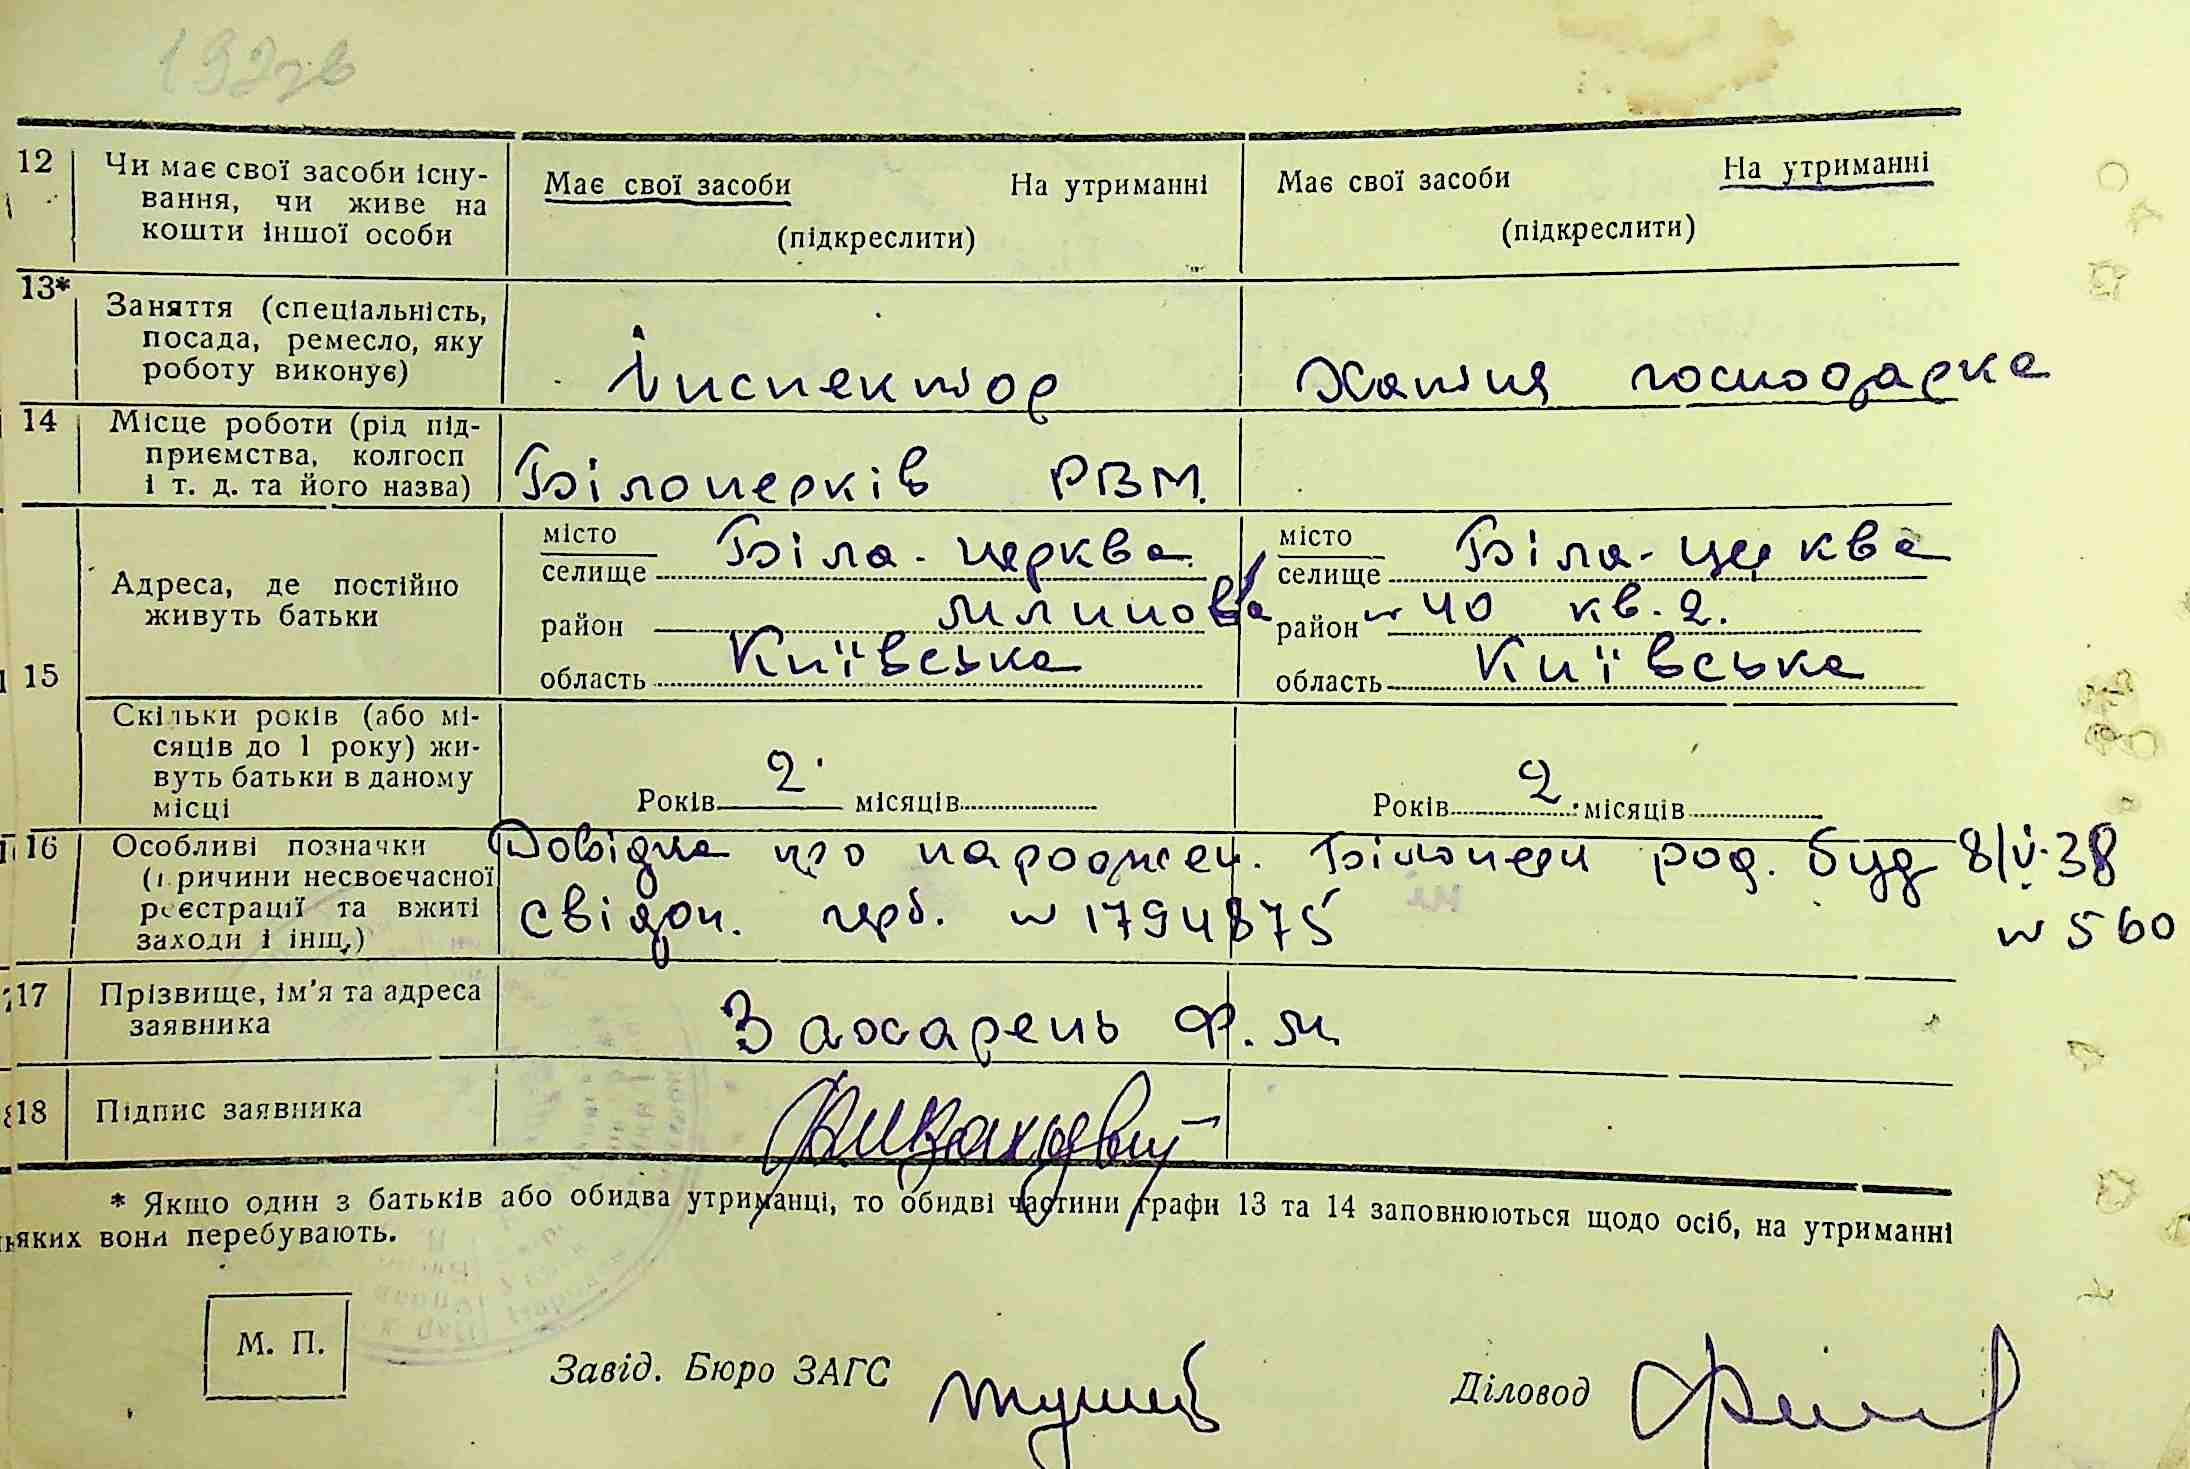 192зв
12 Чи має свої засоби існу-
вання, чи живе на
кошти іншої особи
Має свої засоби На утриманні
(підкреслити)
Має свої засоби На утриманні
(підкреслити)
13* Заняття (спеціальність,
посада, ремесло, яку
роботу виконує)
Інспектор
Хатня господарка
14 Місце роботи (рід під-
приємства, колгосп
і т. д. та його назва)
Білоцерків РВМ.
15 Адреса, де постійно
живуть батьки
місто
селище Біла-церква
район Млинова
область Київська
місто
селище Біла-церква
район № 40 кв. 2.
область Київська
Скільки років (або мі-
сяців до 1 року) жи-
вуть батьки в даному
місці
Років 2 місяців
Років 2 місяців
16 Особливі позначки
(причини несвоєчасної
реєстрації та вжиті
заходи і інщ.)
Довідка про народжен. Білоцерк род. буд 8/V-38
№ 560
свідоц. герб. № 1794875
17 Прізвище, ім'я та адреса
заявника
Захарень Ф. М
18 Підпис заявника
* Якщо один з батьків або обидва утриманці, то обидві частини графи 13 та 14 заповнюються щодо осіб, на утриманні
яких вони перебувають.
М. П.
Завід. Бюро ЗАГС
Діловод